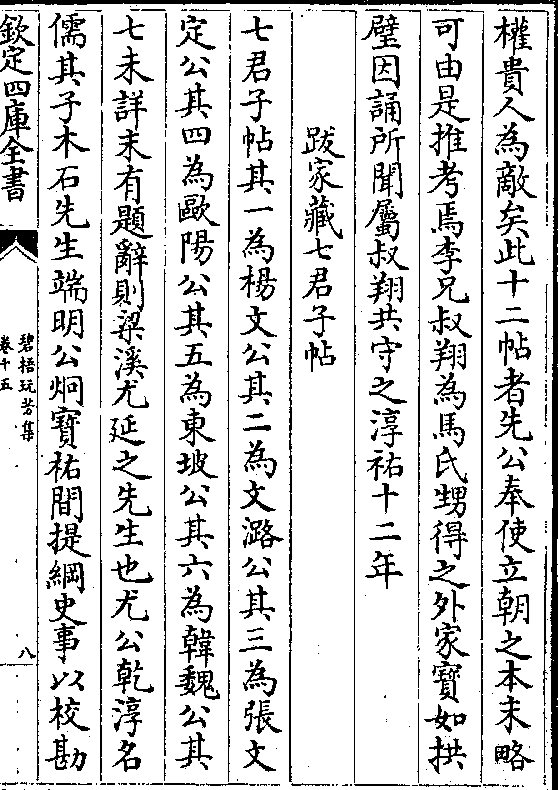 權貴人為敵矣此十二帖者先公奉使立朝之本末略
可由是推考焉李兄叔翔為馬氏甥得之外家寳如拱
璧因誦所聞屬叔翔共守之淳祐十二年
跋家藏七君子帖
七君子帖其一為楊文公其二為文潞公其三為張文
定公其四為歐陽公其五為東坡公其六為韓魏公其
七未詳末有題辭則梁溪尤延之先生也尤公乾淳名
儒其子木石先生端明公焵寶祐間提綱史事以校勘
欽定四庫全書
碧梧玩芳集
卷十五
八